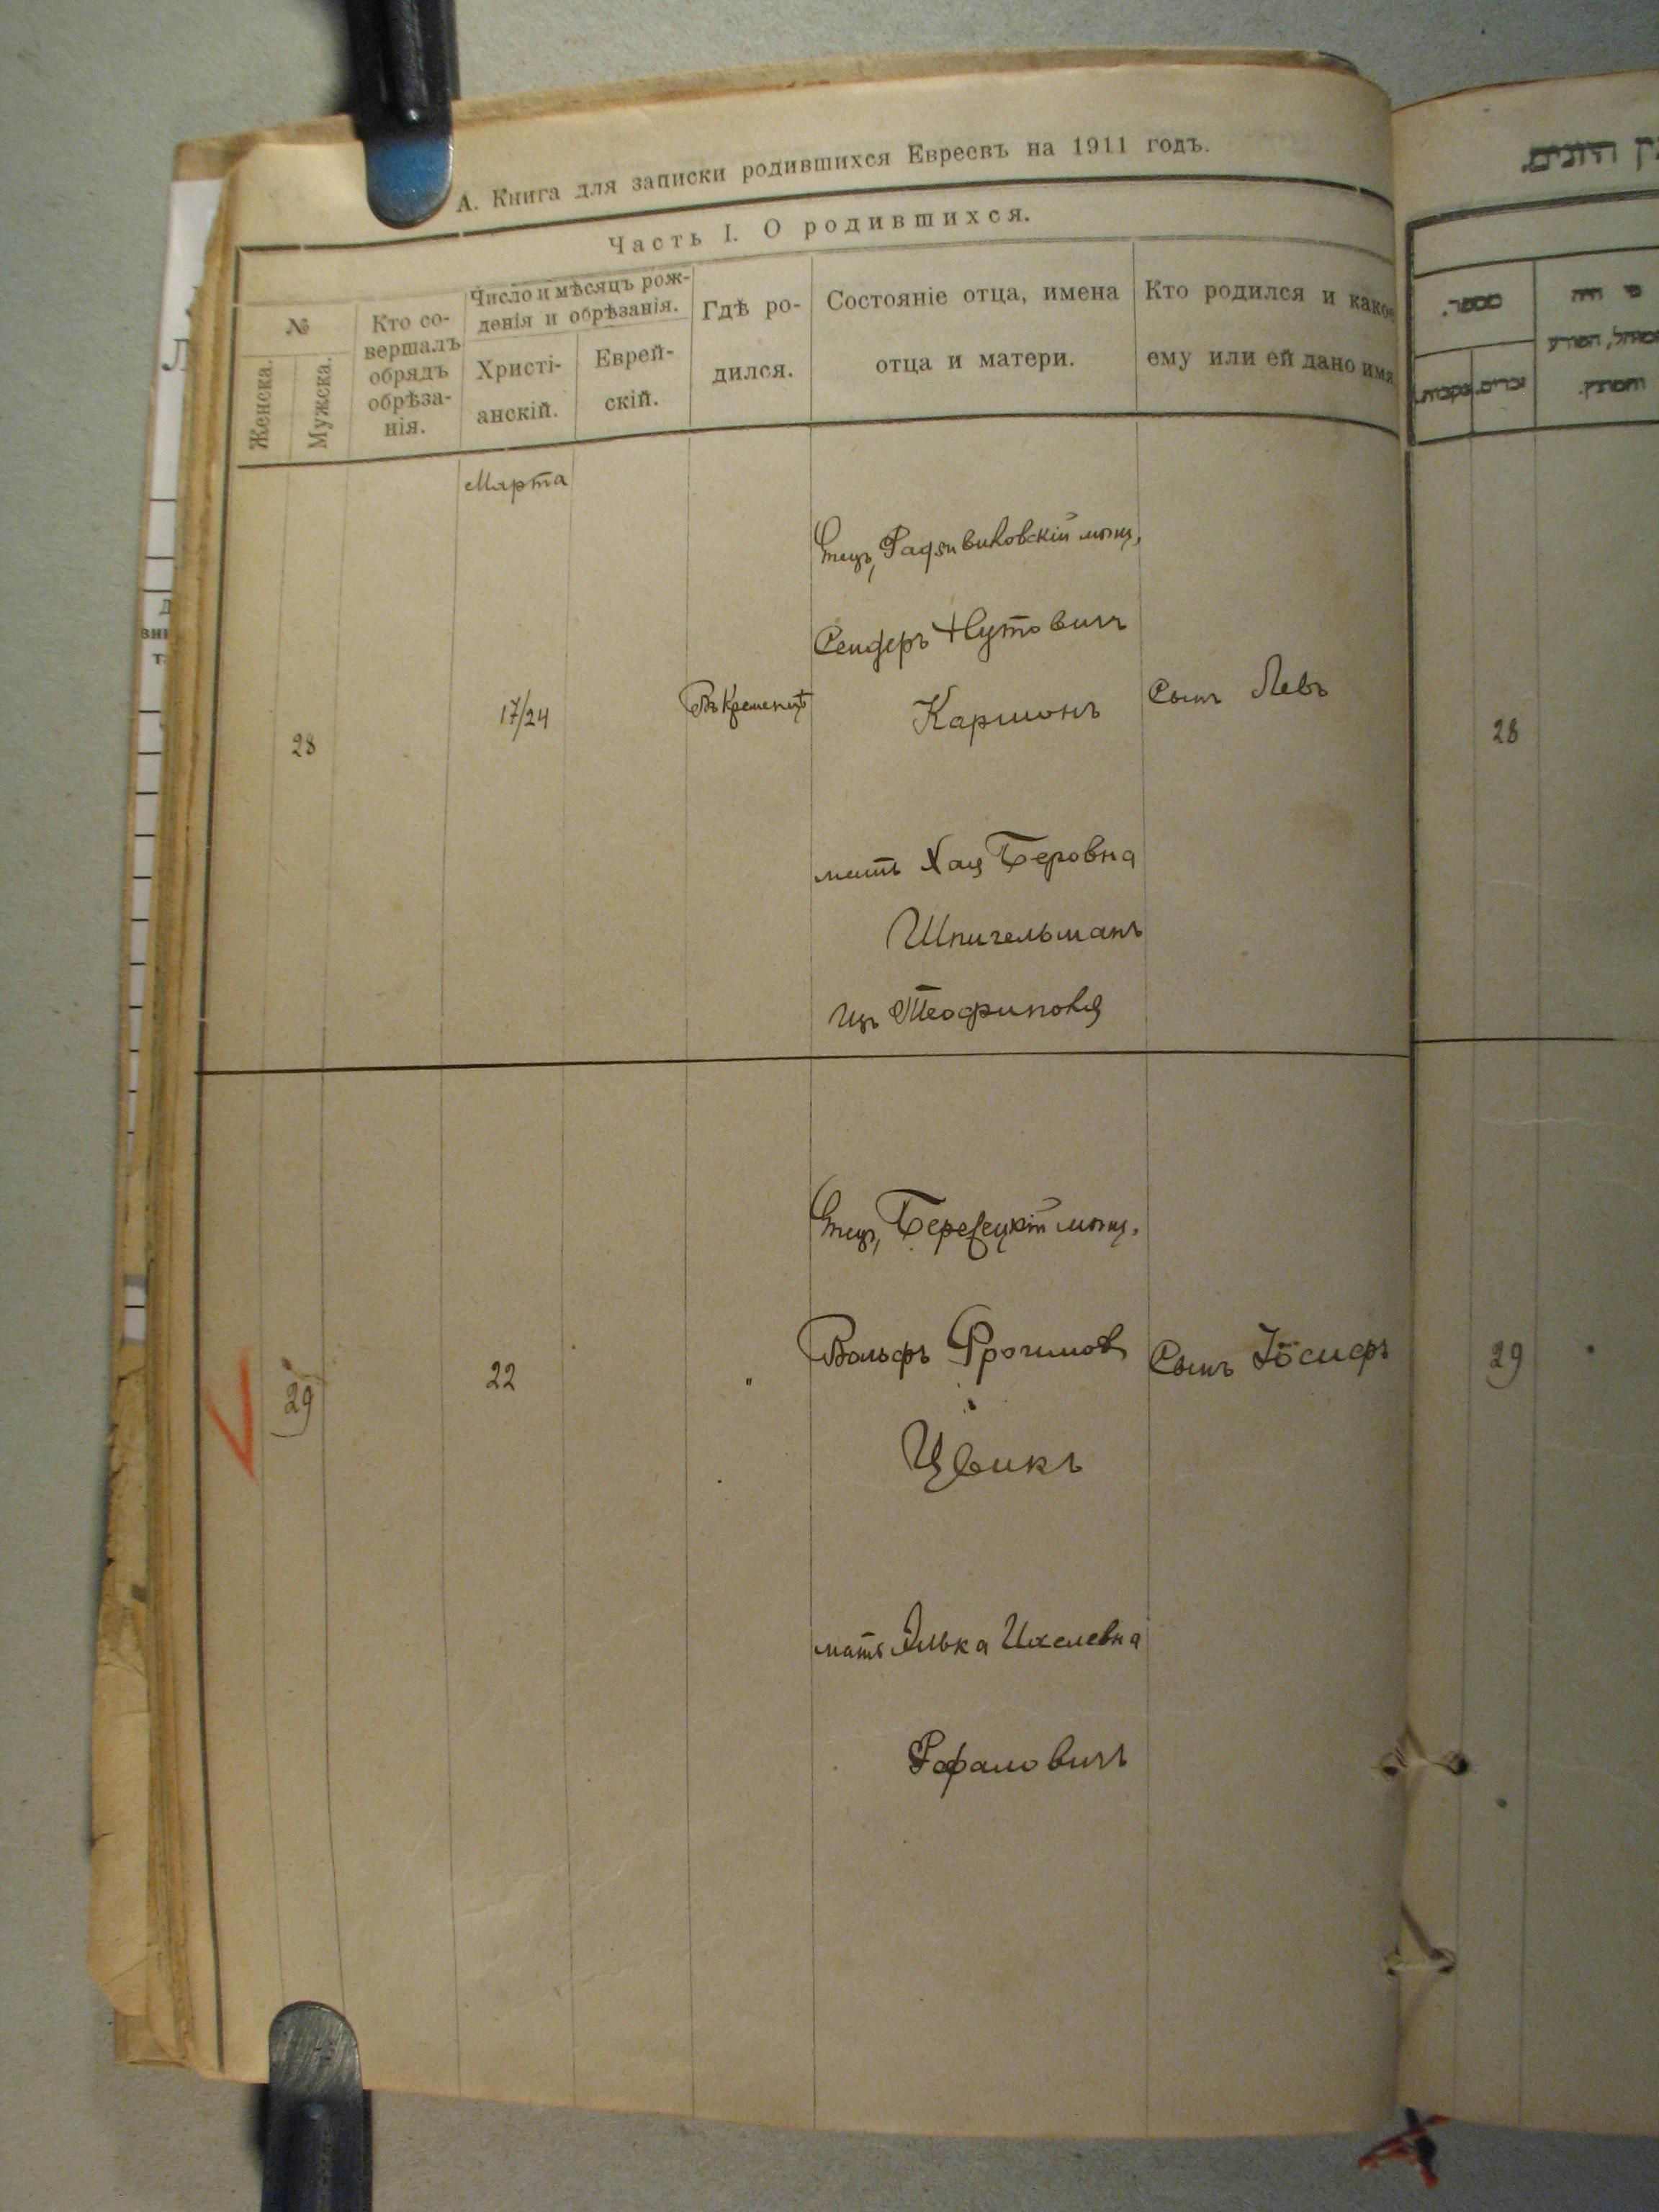 А. Книга для записки родившихся Евреевъ на 1911 годъ.
Часть I. О родившихся.
№
Женска.
Мужска.
Кто со-
вершалъ
обрядъ
обрѣза-
нія.
Число и мѣсяцъ рож-
денія и обрѣзанія.
Христі-
анскій.
Еврей-
скій.
Гдѣ ро-
дился.
Состояніе отца, имена
отца и матери.
Кто родился и какое
ему или ей дано имя
Марта
28
17/24
Въ Кременцѣ
Отецъ, Радзивиловскій мѣщ,
Сендеръ Нутовичъ
Каршонъ
мать Хая Беровна
Шпигельманъ
изъ Теофиполя
Сынъ Левъ
29
22
"
Отецъ, Березецкій мѣщ.
Вольфъ Фроимов
Цвикъ
мать Элька Ихелевна
Рафаловичъ
Сынъ Іосифъ
מספר.
זכרים.
נקבות.
מי היה
המוהל, הפורע
והמוצץ.
28
29